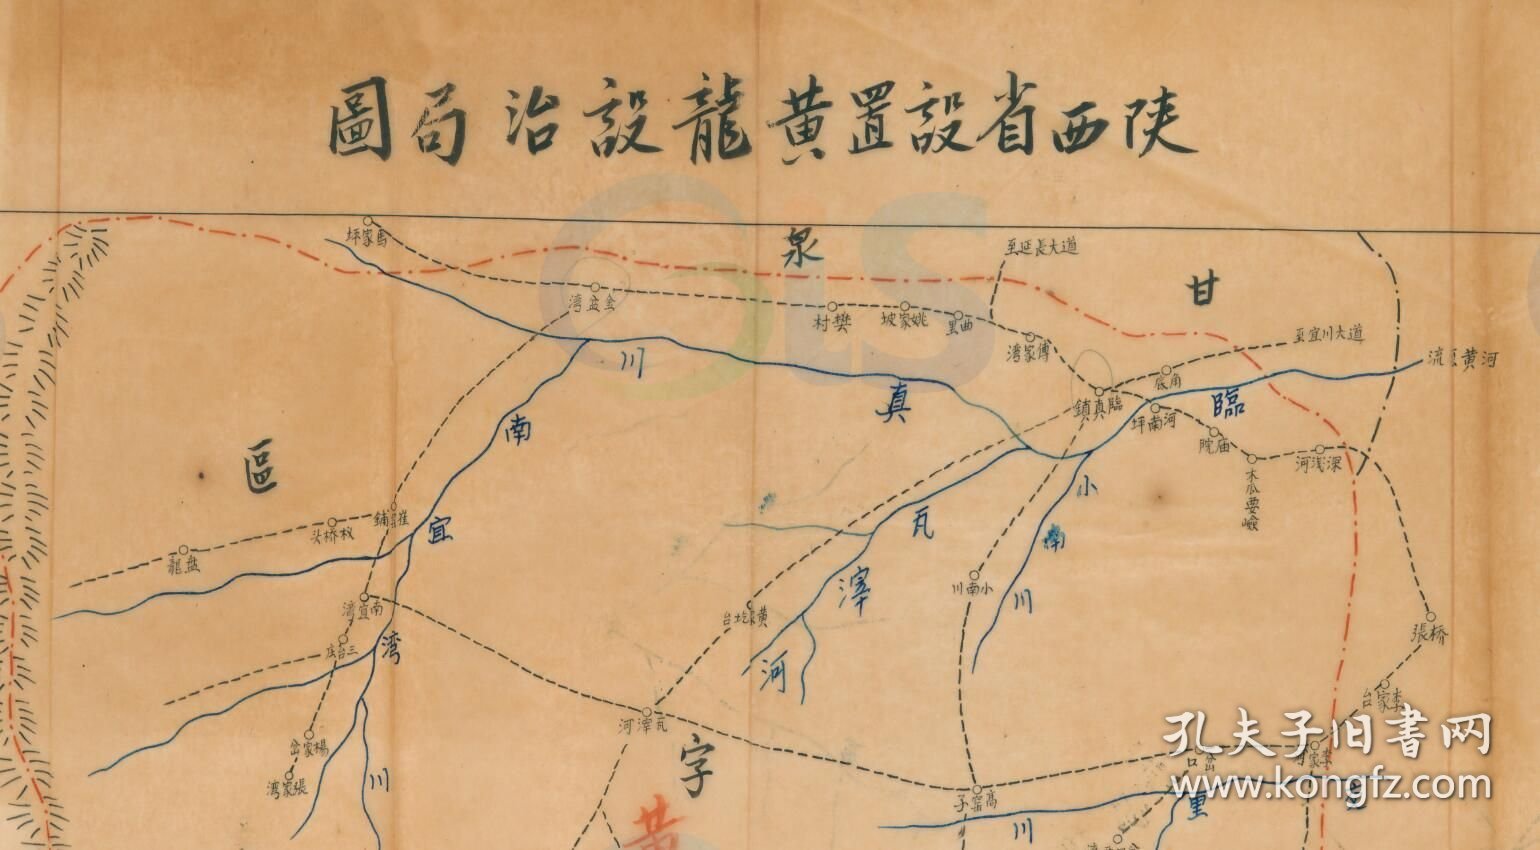 陝西省設置黃龍設治局圖
馬家坪
泉
甘
至延長大道
至宜川大道
河黃㐁流
金盆湾
樊村
姚家坡
曲里
傅家湾
臨真鎮
角底
河南坪
庙院
深浅河
木瓜要嶮
臨真川
區
南宜湾川
盘龍
杈桥头
南宜湾
三台庄
楊家岔
張家湾
瓦滓河
小南川
小南川
黄圪台
瓦滓河
字
黃
高窑子
桥張
李家台
川
孔夫子旧书网
www.kongfz.com